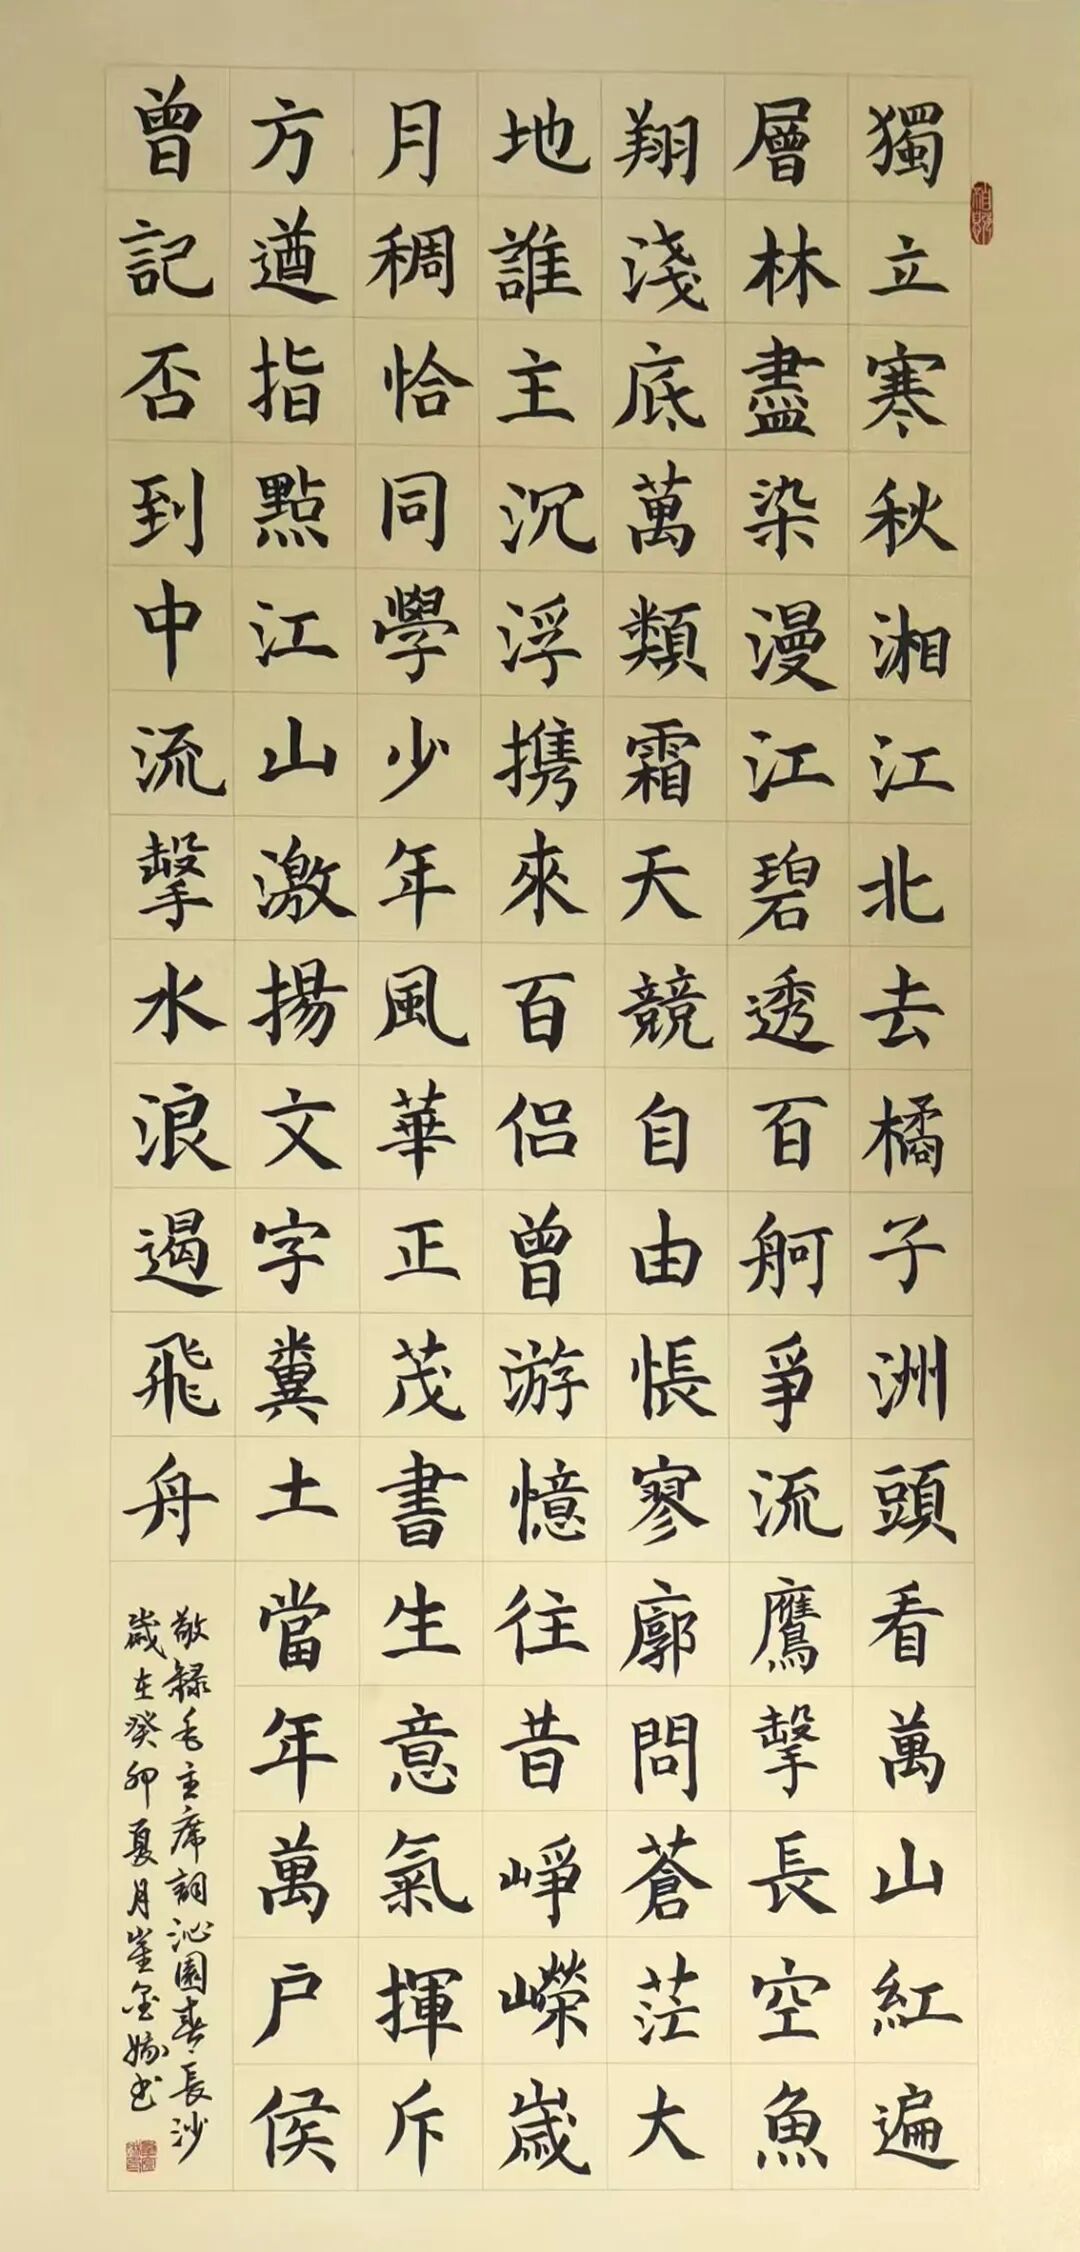 獨立寒秋湘江北去橘子洲頭看萬山紅遍
層林盡染漫江碧透百舸爭流鷹擊長空魚
翔淺底萬類霜天競自由悵寥廓問蒼茫大
地誰主沉浮携來百侣曾游憶往昔崢嶸歲
月稠恰同學少年風華正茂書生意氣揮斥
方遒指點江山激揚文字糞土當年萬户侯
曾記否到中流擊水浪遏飛舟
敬録毛主席詞沁園春長沙
歲在癸卯夏月崔金娥书